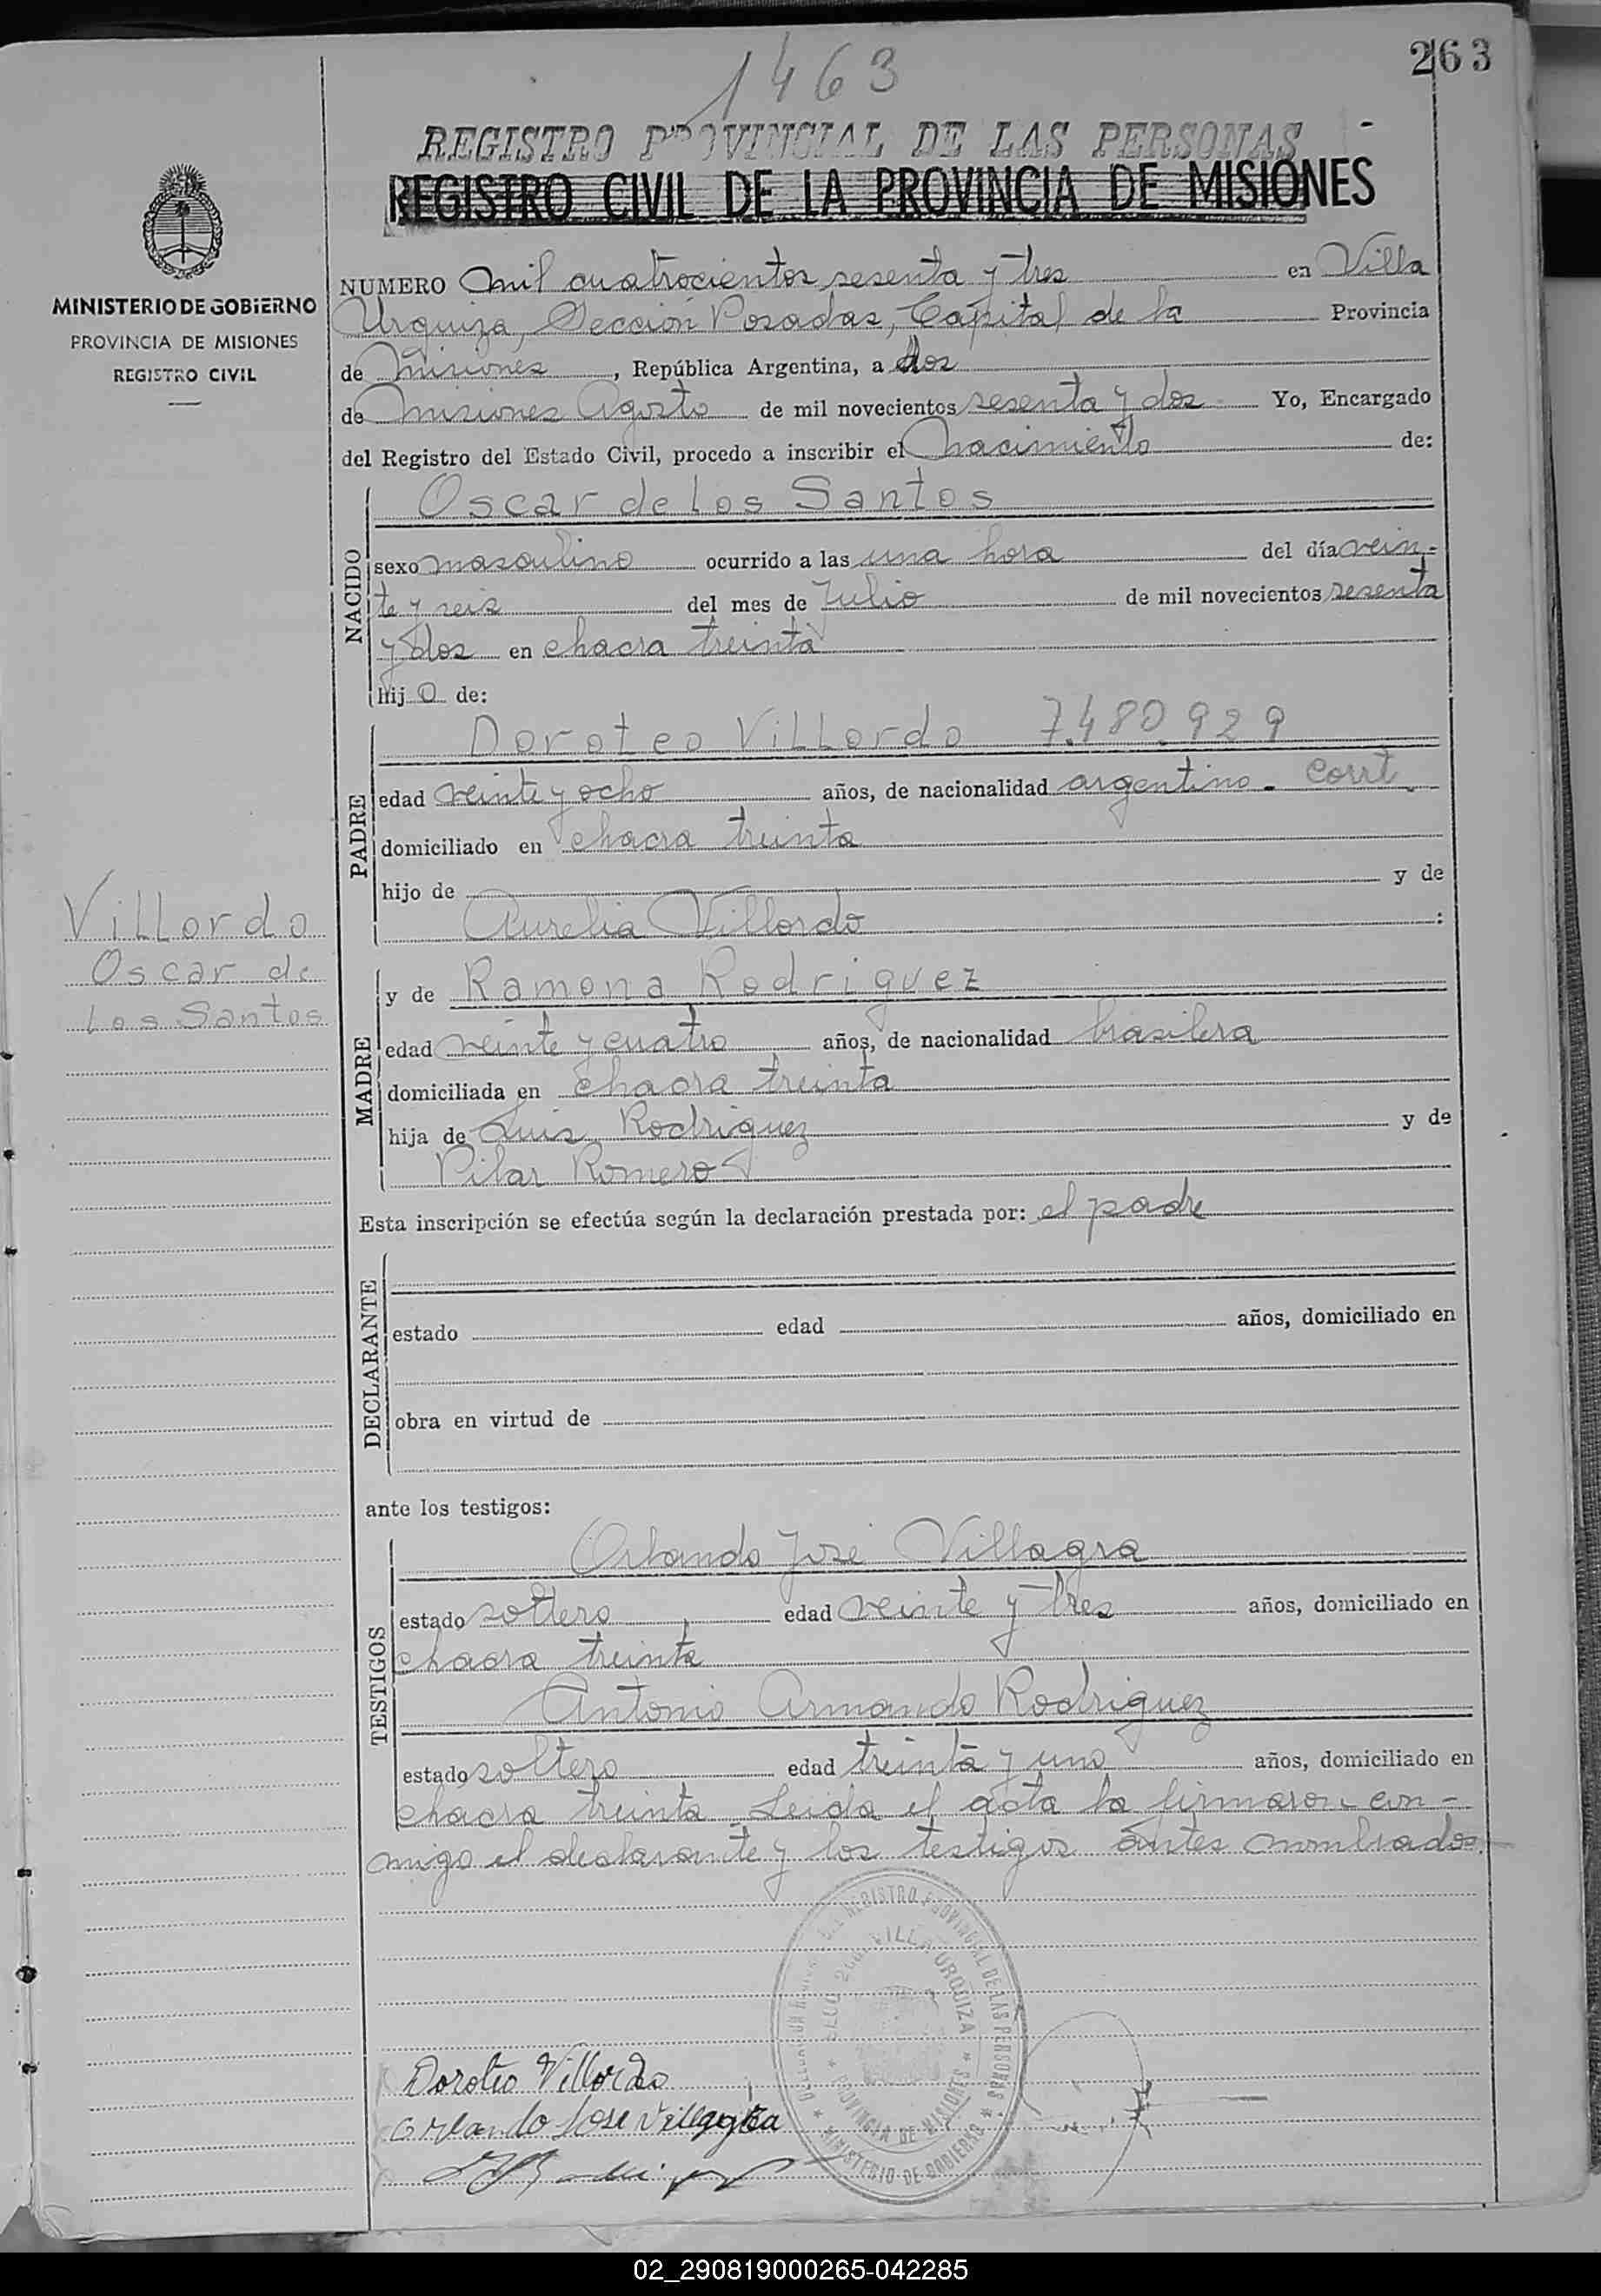 1463
263
REGISTRO PROVINCIAL DE LAS PERSONAS
REGISTRO CIVIL DE LA PROVINCIA DE MISIONES
MINISTERIO DE GOBIERNO
PROVINCIA DE MISIONES
REGISTRO CIVIL
NUMERO mil cuatrocientos sesenta y tres en Villa
Urquiza, Sección Posadas, Capital de la Provincia
de Misiones, República Argentina, a dos
de misiones Agosto de mil novecientos sesenta y dos Yo, Encargado
del Registro del Estado Civil, procedo a inscribir el nacimiento de:
NACIDO
Oscar de los Santos
sexo masculino ocurrido a las una hora del día vein-
te y seis del mes de Julio de mil novecientos sesenta
y dos en chacra treinta
hijo de:
PADRE
Doroteo Villordo 7.480.929
edad veinte y ocho años, de nacionalidad argentino - Corrt.
domiciliado en chacra treinta
hijo de y de
Aurelia Villordo :
Villordo
Oscar de
los Santos
MADRE
y de Ramona Rodriguez
edad veinte y cuatro años, de nacionalidad brasilera
domiciliada en chacra treinta
hija de Luis Rodriguez y de
Pilar Romero
Esta inscripción se efectúa según la declaración prestada por: el padre
DECLARANTE
estado edad años, domiciliado en
obra en virtud de
ante los testigos:
TESTIGOS
Orlando José Villagra
estado soltero edad veinte y tres años, domiciliado en
chacra treinta
Antonio Armando Rodriguez
estado soltero edad treinta y uno años, domiciliado en
chacra treinta Leida el acta la firmaron con-
migo el declarante y los testigos antes nombrados.
REGISTRO PROVINCIAL DE LAS PERSONAS
VILLA URQUIZA
PROVINCIA DE MISIONES
MINISTERIO DE GOBIERNO
Doroteo Villordo
Orlando Jose Villagra
02_290819000265-042285